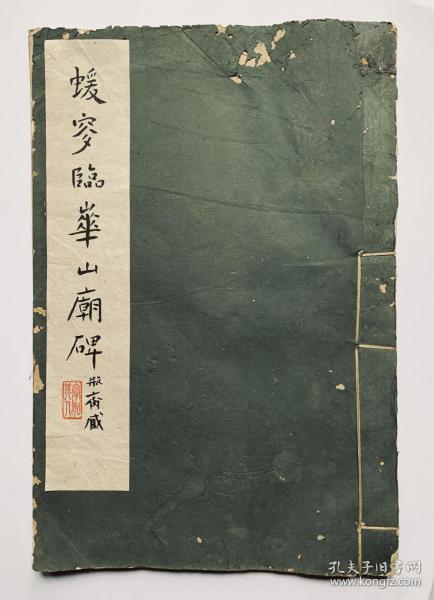 蝯叟臨華山廟碑
瓶齋藏
孔夫子旧书网
www.kongfz.com